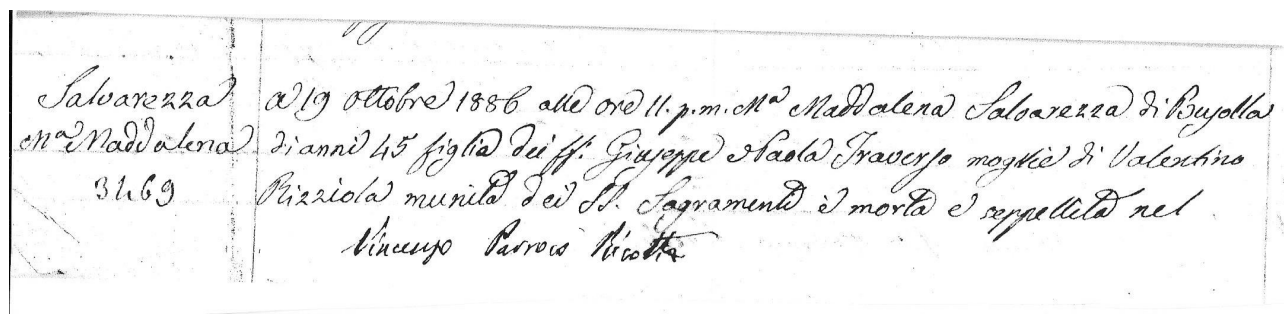 Salvarezza
Mª Maddalena
3469
a 19 ottobre 1886 alle ore 11. p.m. Mª Maddalena Salvarezza di Busolla
di anni 45 figlia dei ff. Giuseppe e Paola Traverso moglie di Valentino
Rizziola munita dei SS. Sagramenti è morta e seppellita nel
Vincenzo Parroco